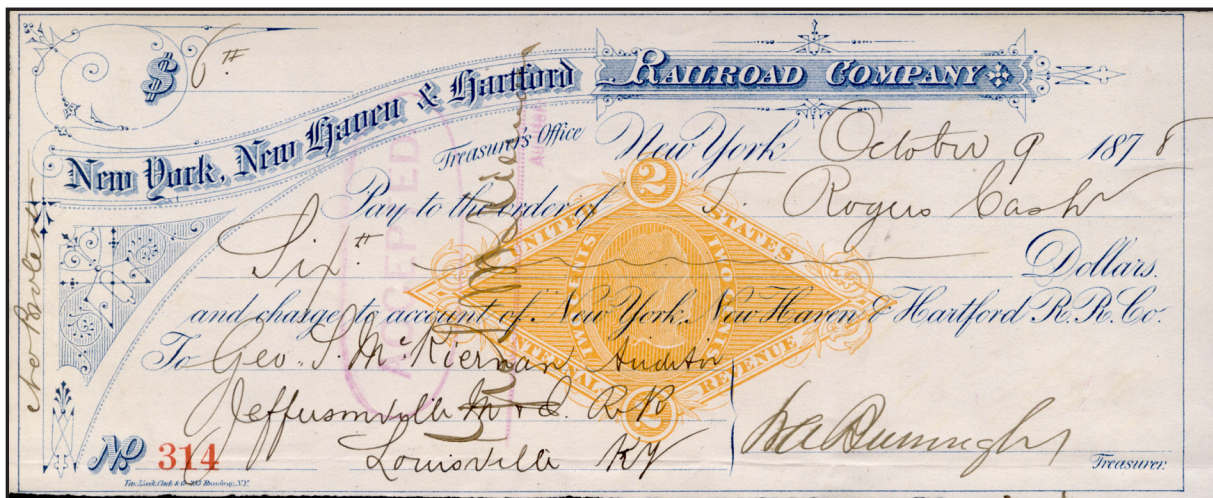 $ 6 #
New York, New Haven & Hartford RAILROAD COMPANY
Treasurer's Office New York October 9 1878
Pay to the order of T. Rogers Cash
Six # Dollars.
and charge to account of New York, New Haven & Hartford R. R. Co.
To Geo. S. McKiernan Auditor
Jeffersonville M & I. RR
Louisville KY
Treasurer.
No 314
ACCEPTED
2
UNITED STATES
INTERNAL REVENUE
TWO CENTS
TWO CENTS
2